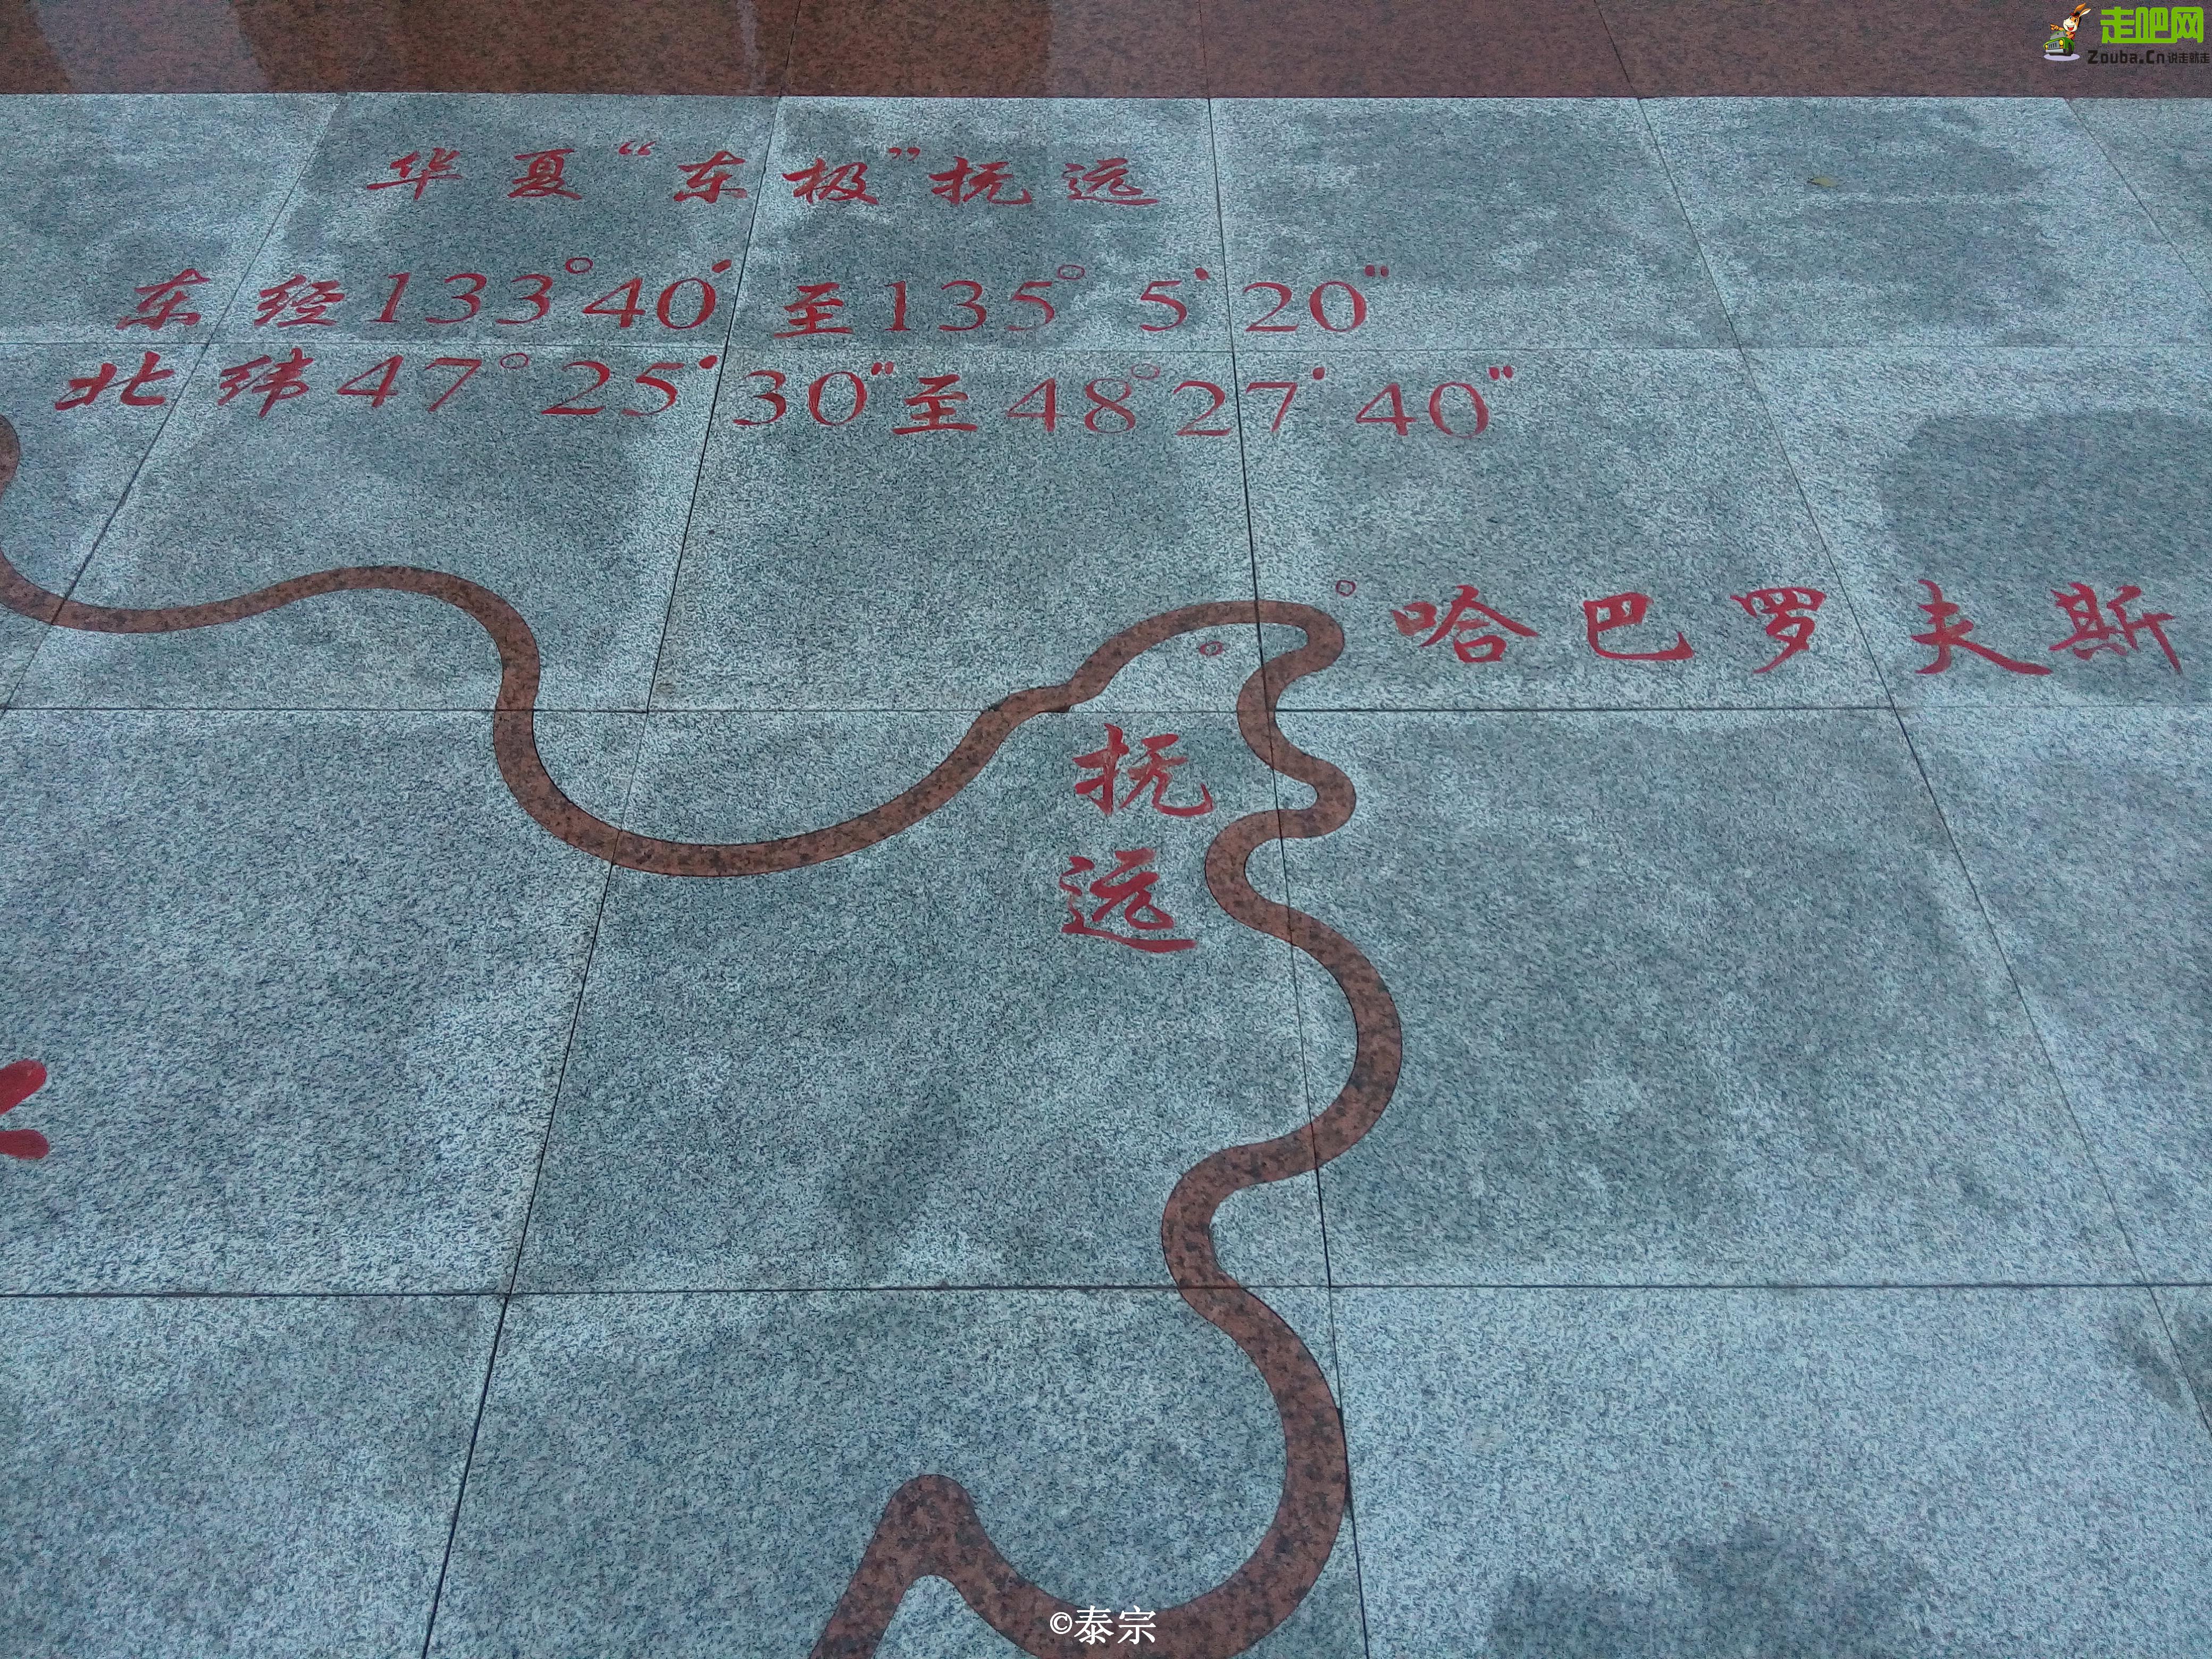 走吧网
Zouba.Cn说走就走
华夏“东极”抚远
东经133°40′至135°5′20″
北纬47°25′30″至48°27′40″
哈巴罗夫斯
抚远
©泰宗